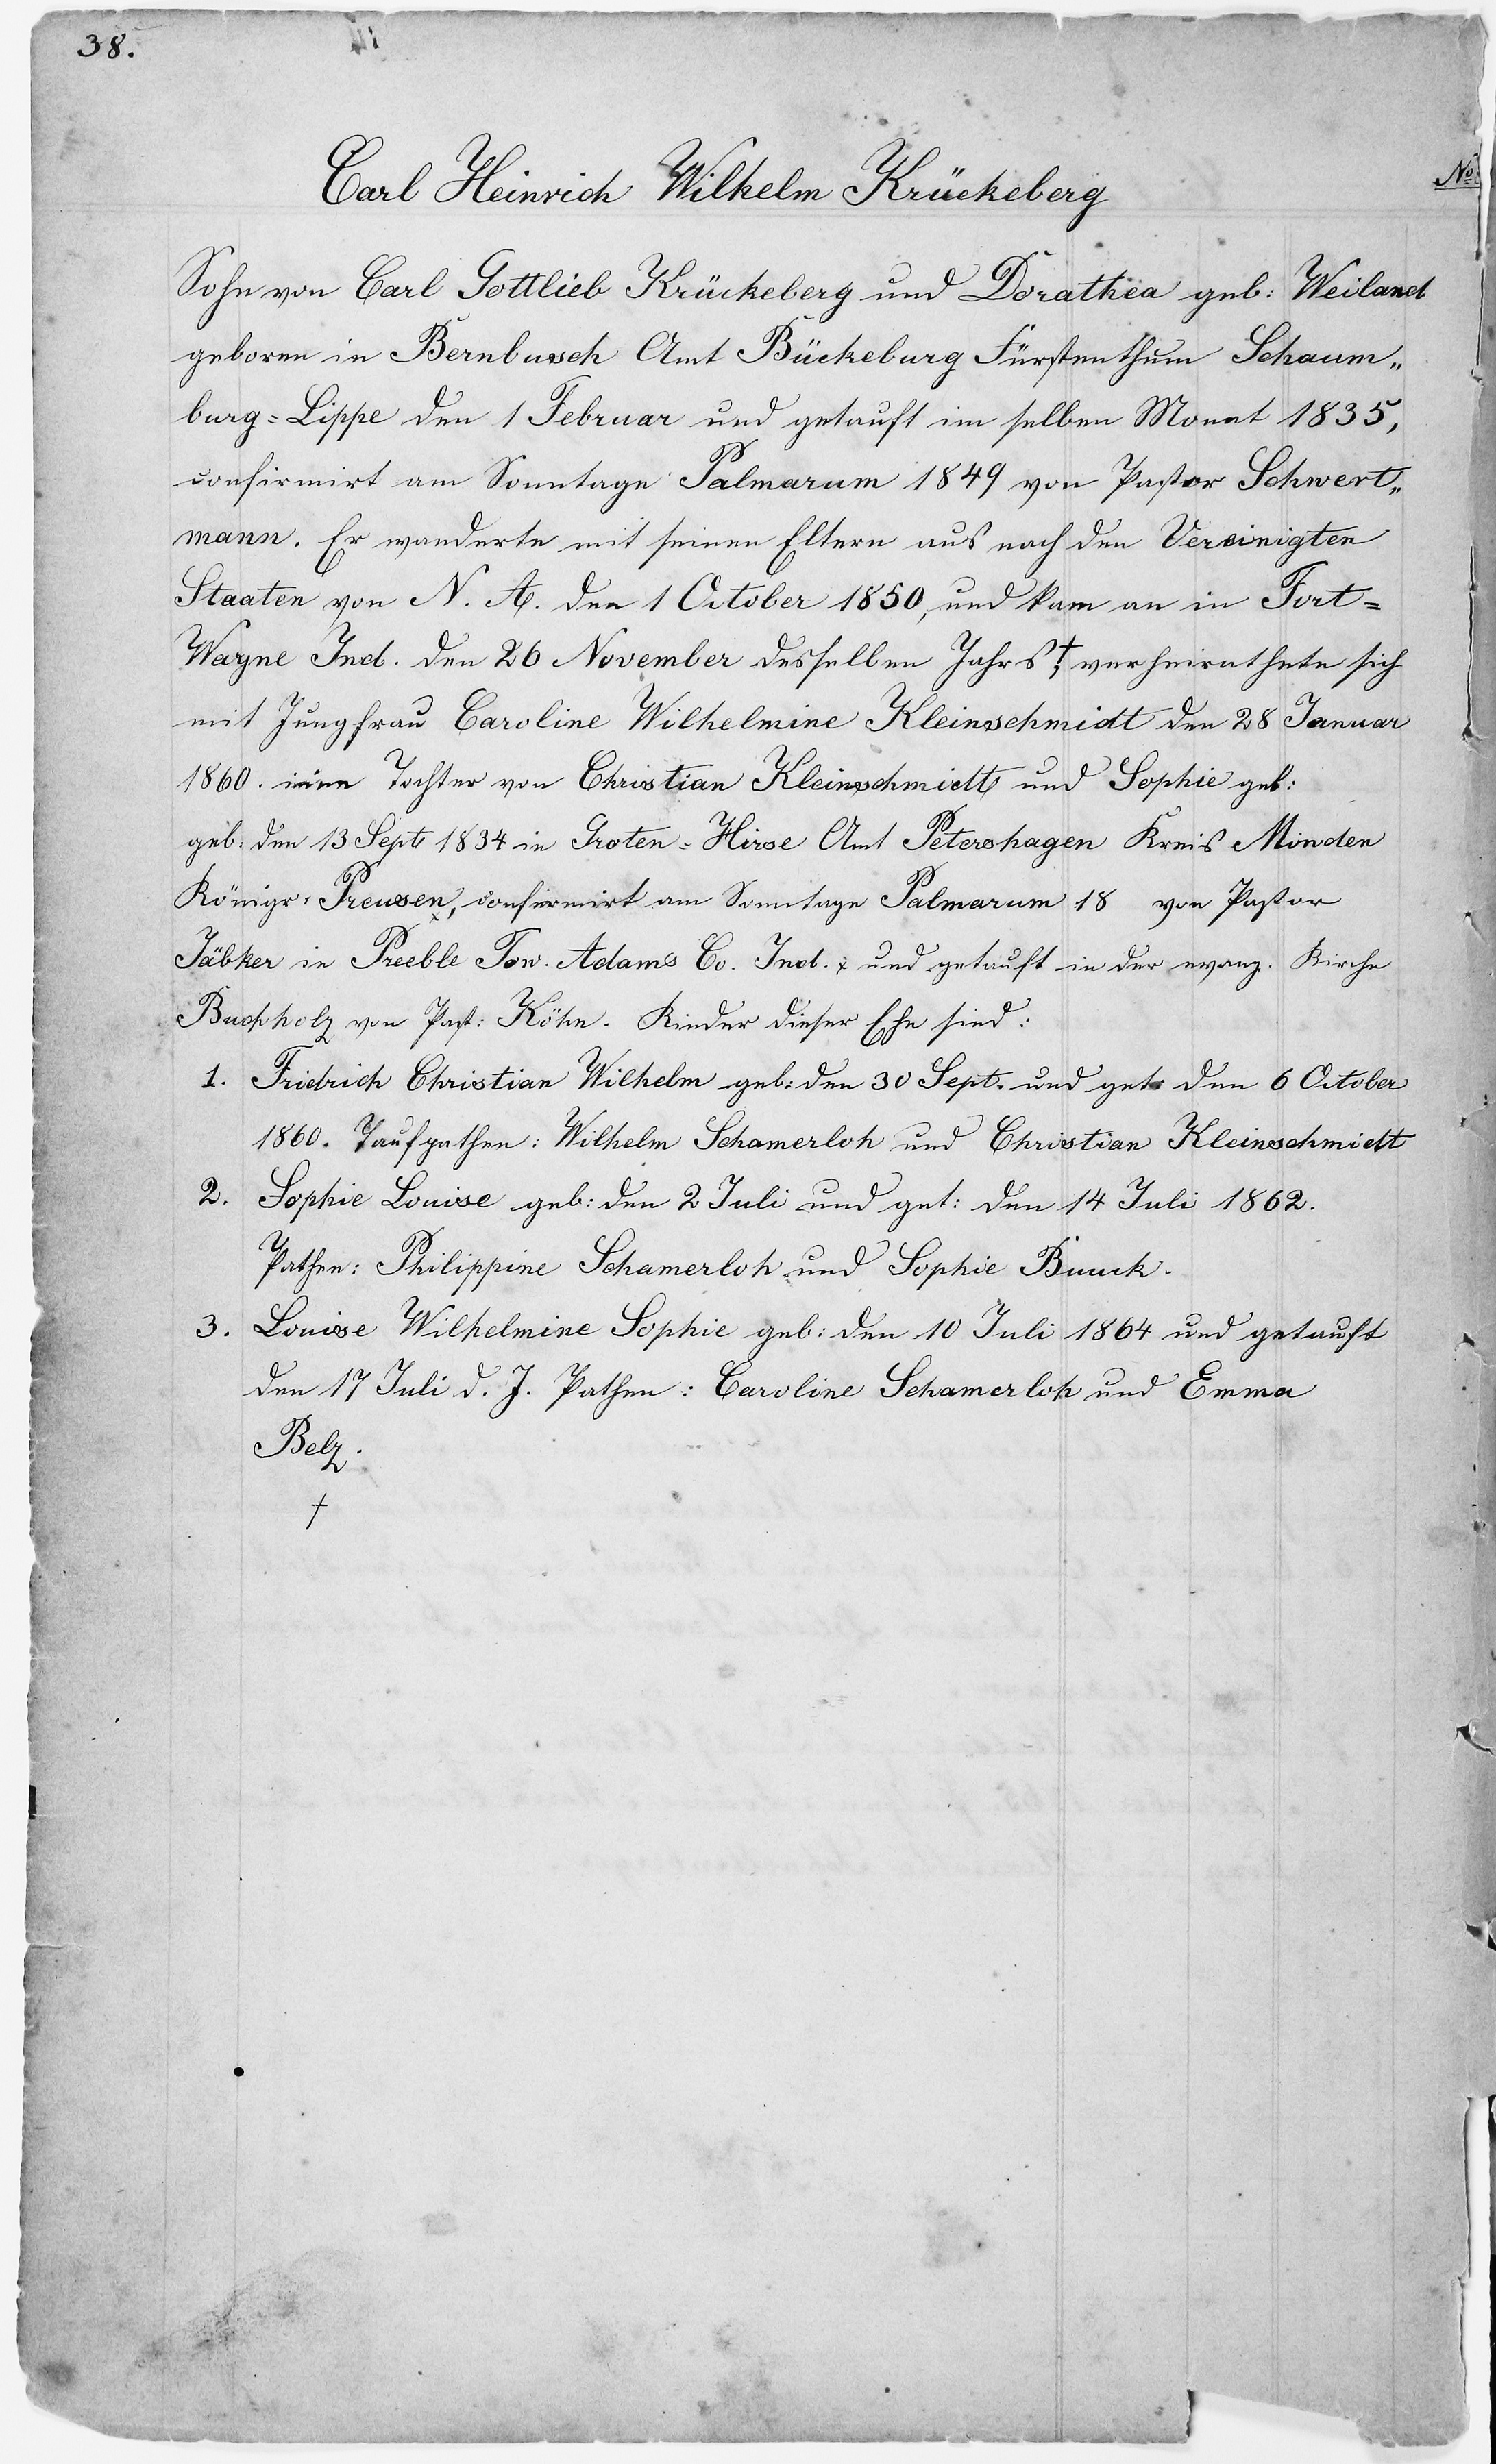 38.
Carl Heinrich Wilhelm Krückeberg
No:
Sohn von Carl Gottlieb Krückeberg und Dorathea geb: Weiland
geboren in Bernbusch Amt Bückeburg Fürstenthum Schaum„
burg=Lippe den 1 Februar und getauft im selben Monat 1835,
confirmirt am Sonntage Palmarum 1849 von Pastor Schwert„
mann. Er wanderte mit seinen Eltern aus nach den Vereinigten
Staaten von N. A. den 1 October 1850, und kam an in Fort=
Wayne Ind. den 26 November desselben Jahrs†, verheirathete sich
mit Jungfrau Caroline Wilhelmine Kleinschmidt den 28 Januar
1860. eine Tochter von Christian Kleinschmidt und Sophie geb:
geb: den 13 Sept 1834 in Groten=Hirse Amt Petershagen Kreis Minden
Königr: Preusen, × confirmirt am Sonntage Palmarum 18 von Pastor
Jäbker in Preeble Tow. Adams Co. Ind. × und getauft in der evang. Kirche
Buchholz von Past: Köhn. Kinder dieser Ehe sind:
1. Fridrich Christian Wilhelm geb: den 30 Sept. und get: den 6 October
1860. Taufpathen: Wilhelm Schamerloh und Christian Kleinschmidt
2. Sophie Louise geb: den 2 Juli und get: den 14 Juli 1862.
Pathen: Philippine Schamerloh und Sophie Buuck.
3. Louise Wilhelmine Sophie geb: den 10 Juli 1864 und getauft
den 17 Juli d. J. Pathen: Caroline Schamerloh und Emma
Belz.
†